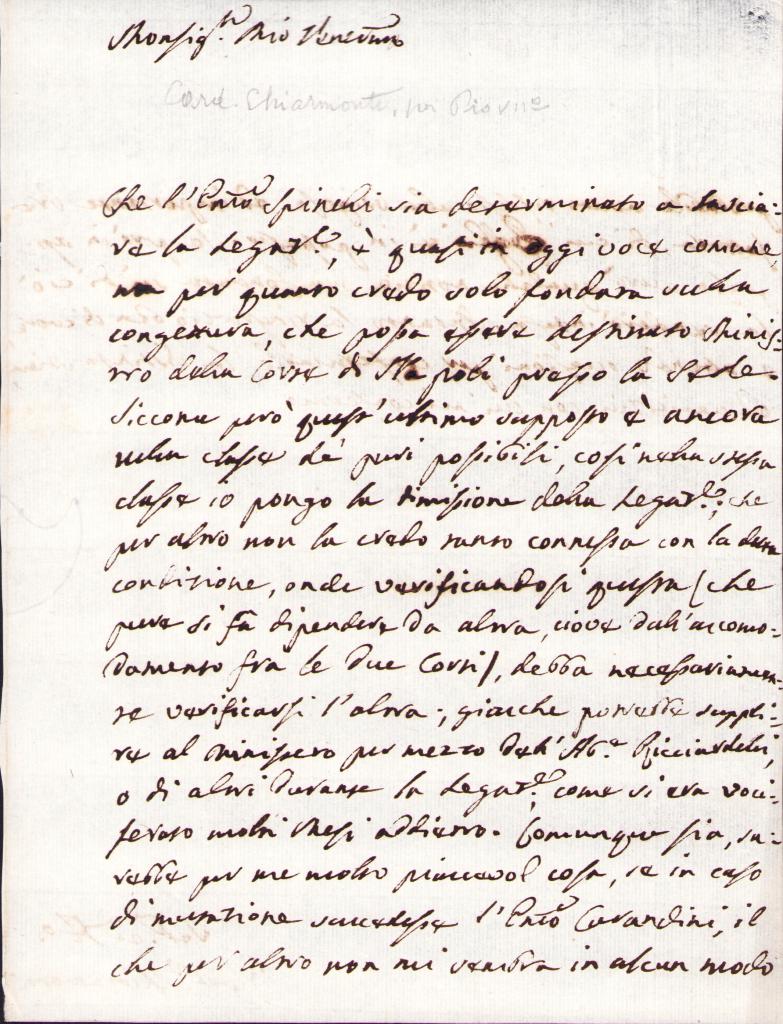 Monsig.r Mio Venerat.mo
Card. Chiarmonti, poi Pio VIIo
Che l'Em̃o Spinelli sia determinato a lascia:
re la Legaz.e, è quasi in oggi voce comune,
ma per quanto credo solo fondata sulla
congettura, che possa essere destinato Minis:
tro della Corte di Napoli presso la S. Sede.
Siccome però quest'ultimo supposto è ancora
nella classe de' puri possibili, così nella stessa
classe io pongo la dimissione della Legaz.e, che
per altro non la credo tanto connessa con la
condizione, onde verificandosi questa (che
pure si fà dipendere da altra, cioè dall'accomo:
damento fra le due Corti), debba necessariamen:
te verificarsi l'altra; giacche potrebbe suppli:
re al ministero per mezzo dell'Ab.e Ricciardelli,
o di altri durante la Legaz.e come si era voci:
ferato molti Mesi addietro. Comunque sia, sa:
rebbe per me molto piacevol cosa, se in caso
di mutazione succedesse l'Em̃o Carandini, il
che per altro non mi sembra in alcun modo